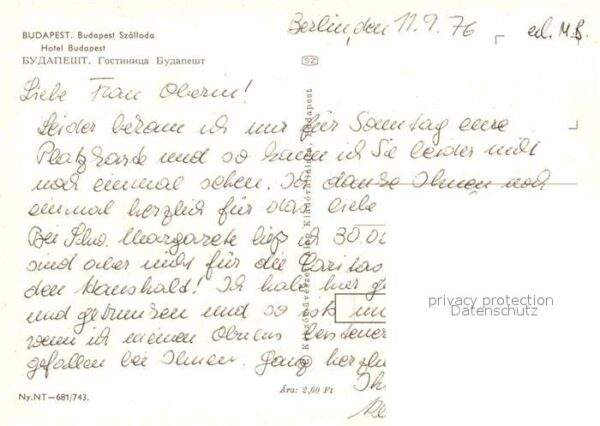 BUDAPEST. Budapest Szálloda
Hotel Budapest
БУДАПЕШТ. Гостиница Будапешт
Berlin, den 11.9.76
SZ
Liebe Frau Oberin!
Leider bekam ich nur für Sonntag eine
Platzkarte und so kann ich Sie leider nicht
noch einmal sehen. Ich danke Ihnen noch
einmal herzlich für das liebe
Bei Schw. Margarete ließ ich 30.00
sind aber nicht für die Caritas
den Haushalt! Ich habe hier
und getrunken und so ist
wenn ich meinen Obulus
gefallen bei Ihnen. Ganz herzlich
Képzőművészeti Alap Kiadóvállalata, Budapest
privacy protection
Datenschutz
Ára: 2,60 Ft
Ny.NT—681/743.